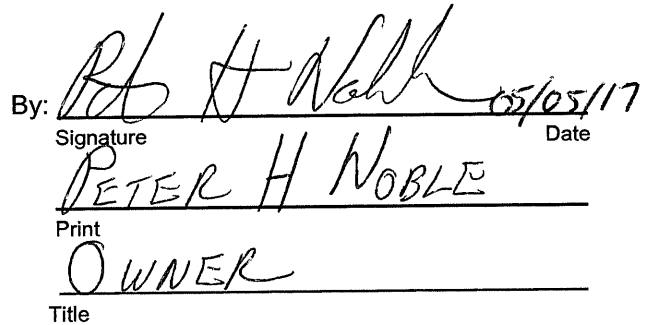 By: Peter H Noble 05/05/17
Signature Date
PETER H NOBLE
Print
OWNER
Title